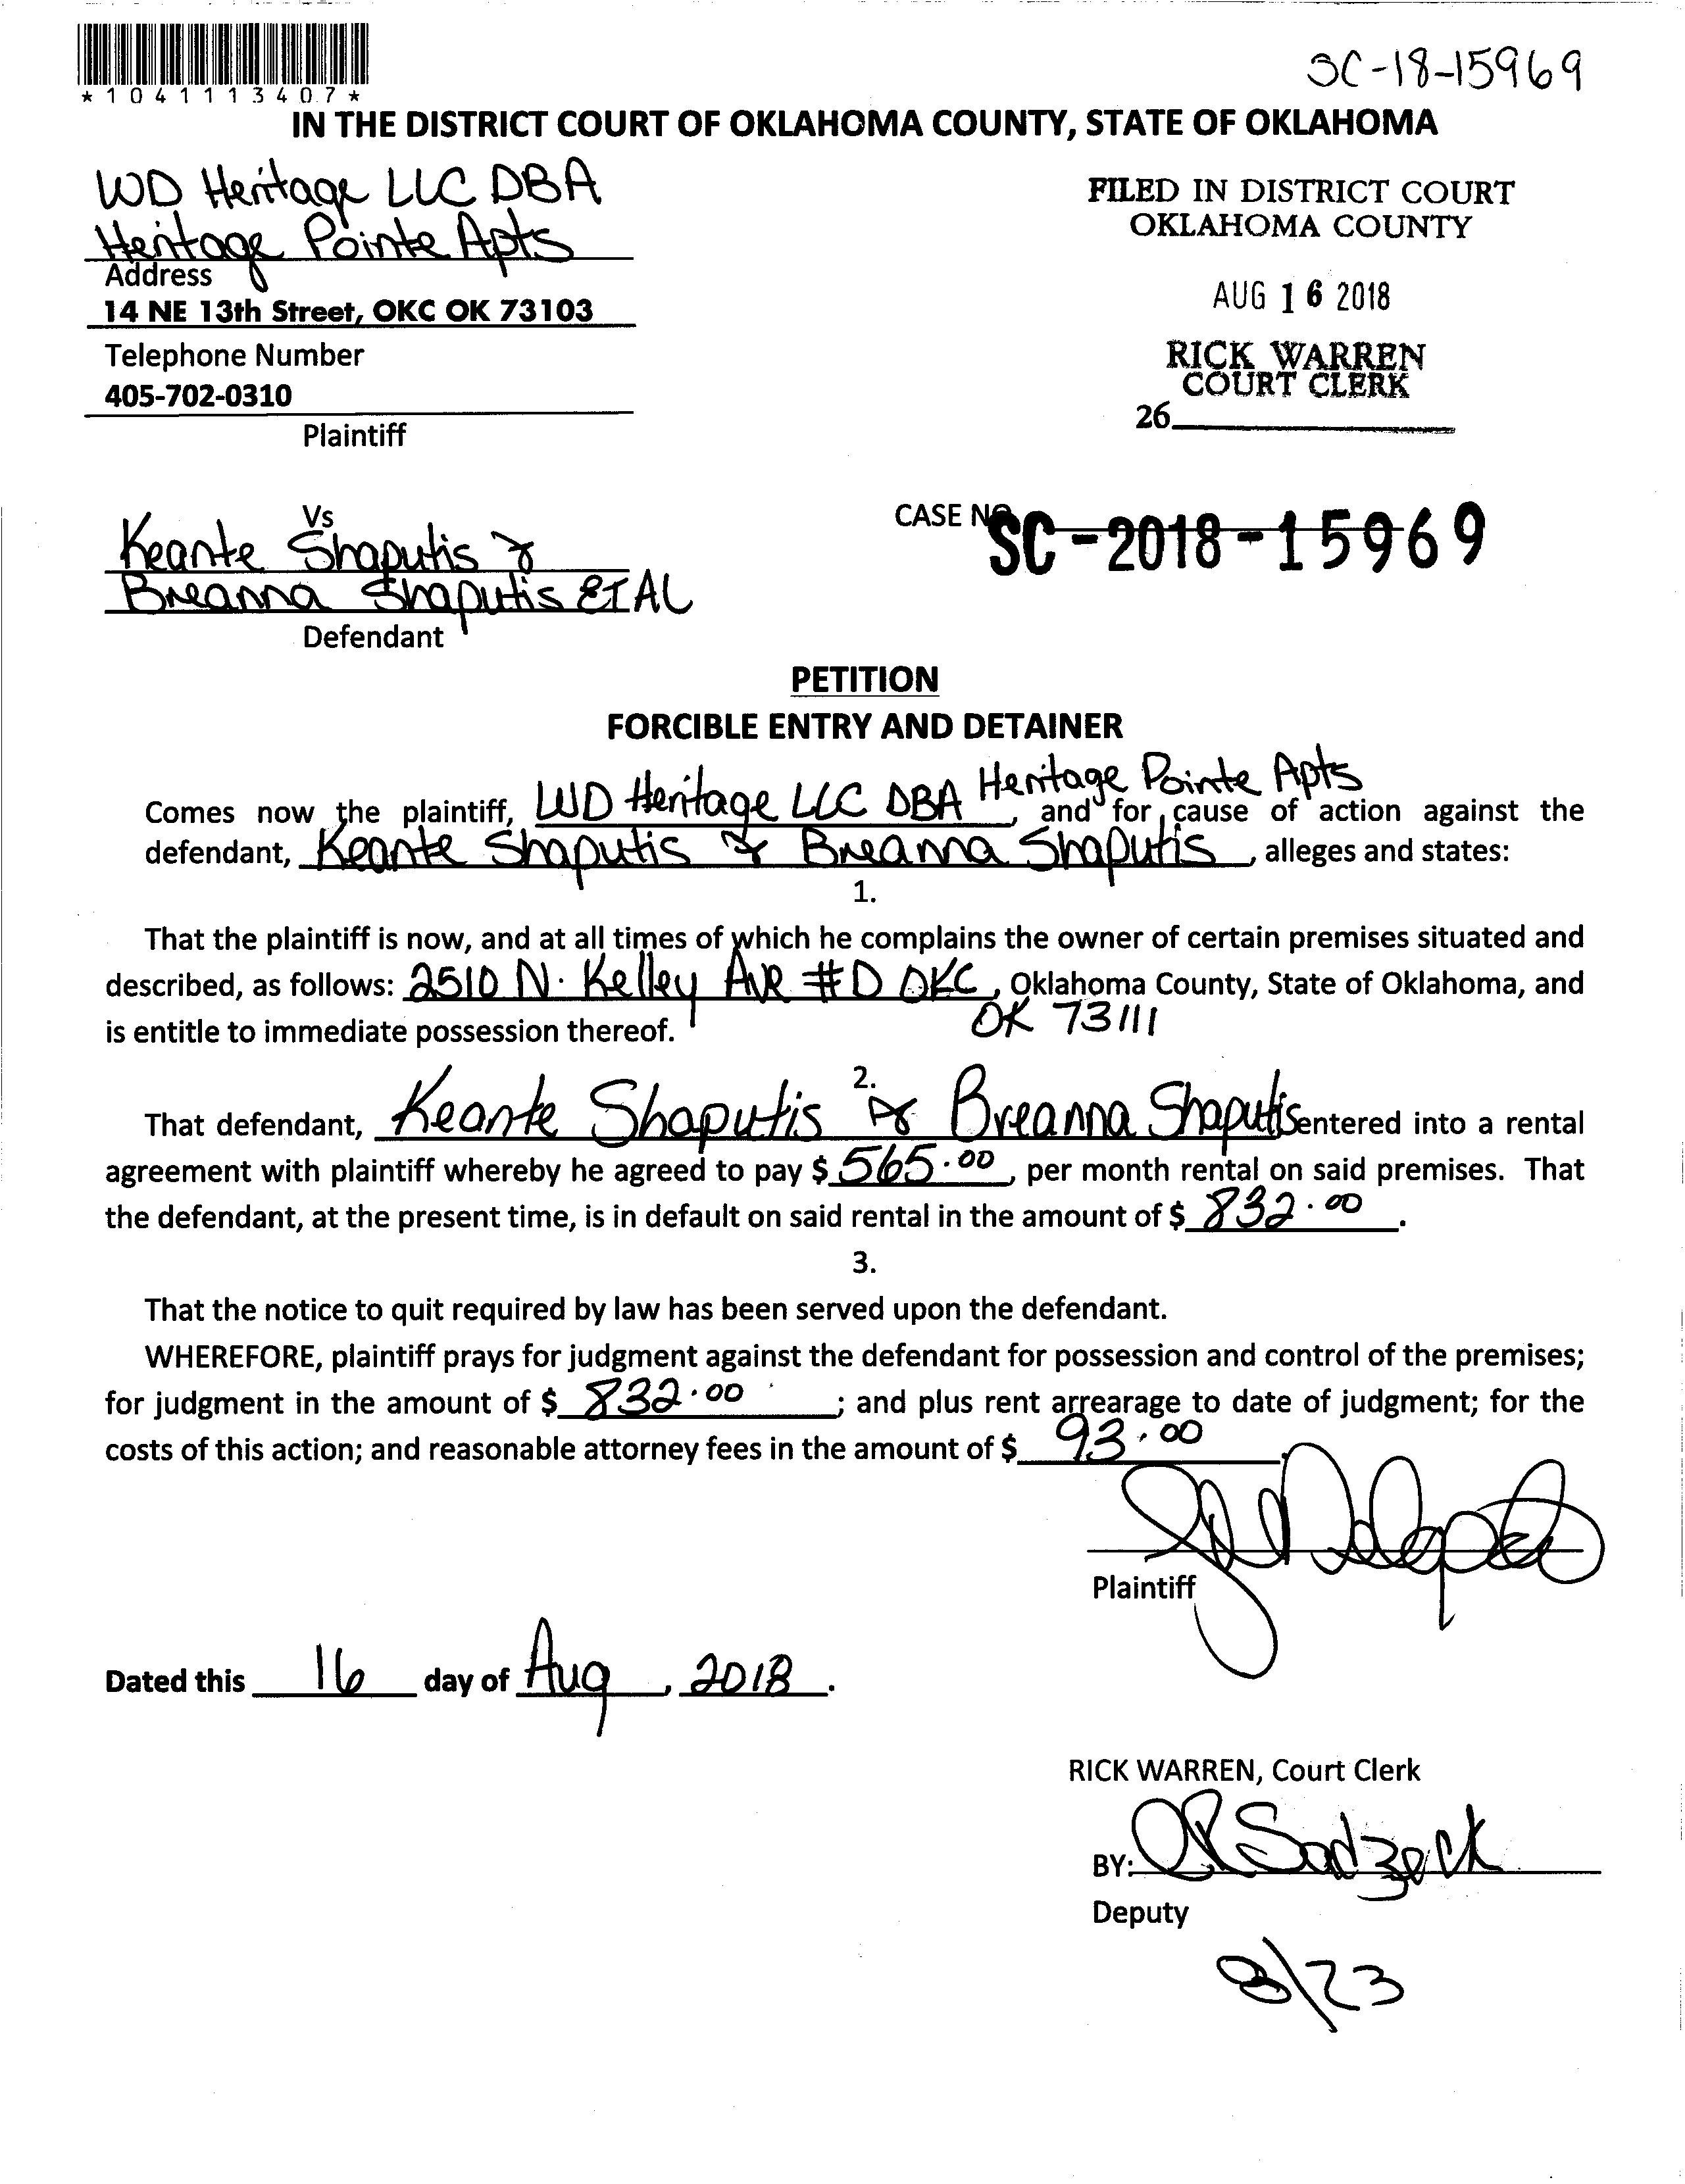 SC-18-15969
*1041113407*
IN THE DISTRICT COURT OF OKLAHOMA COUNTY, STATE OF OKLAHOMA
WD Heritage LLC DBA
Heritage Pointe Apts
Address
14 NE 13th Street, OKC OK 73103
Telephone Number
405-702-0310
Plaintiff
FILED IN DISTRICT COURT
OKLAHOMA COUNTY
AUG 16 2018
RICK WARREN
COURT CLERK
26
Vs
Keante Shaputis &
Breanna Shaputis ET AL
Defendant
CASE NO
SC-2018-15969
PETITION
FORCIBLE ENTRY AND DETAINER
Comes now the plaintiff, WD Heritage LLC DBA Heritage Pointe Apts, and for cause of action against the
defendant, Keante Shaputis & Breanna Shaputis, alleges and states:
1.
That the plaintiff is now, and at all times of which he complains the owner of certain premises situated and
described, as follows: 2510 N. Kelley Ave #D OKC, Oklahoma County, State of Oklahoma, and
OK 73111
is entitle to immediate possession thereof.
2.
That defendant, Keante Shaputis & Breanna Shaputis entered into a rental
agreement with plaintiff whereby he agreed to pay $ 565.00, per month rental on said premises. That
the defendant, at the present time, is in default on said rental in the amount of $ 832.00.
3.
That the notice to quit required by law has been served upon the defendant.
WHEREFORE, plaintiff prays for judgment against the defendant for possession and control of the premises;
for judgment in the amount of $ 832.00; and plus rent arrearage to date of judgment; for the
costs of this action; and reasonable attorney fees in the amount of $ 93.00.
Plaintiff
Dated this 16 day of Aug, 2018.
RICK WARREN, Court Clerk
BY:
Deputy
8/23